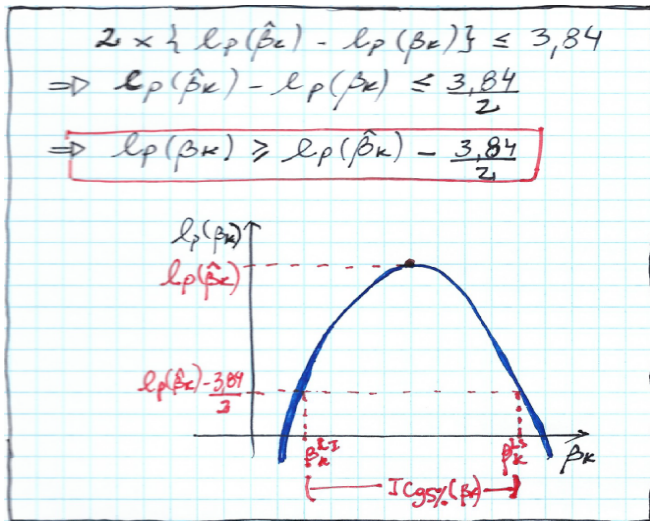 2 × { lp(β̂k) - lp(βk)} ≤ 3,84
⇒ lp(β̂k) - lp(βk) ≤ 3,84/2
⇒ lp(βk) ≥ lp(β̂k) - 3,84/2
lp(βk)
lp(β̂k)
lp(β̂k) - 3,84/2
βk^LI
βk^LS
βk
IC95%(βk)